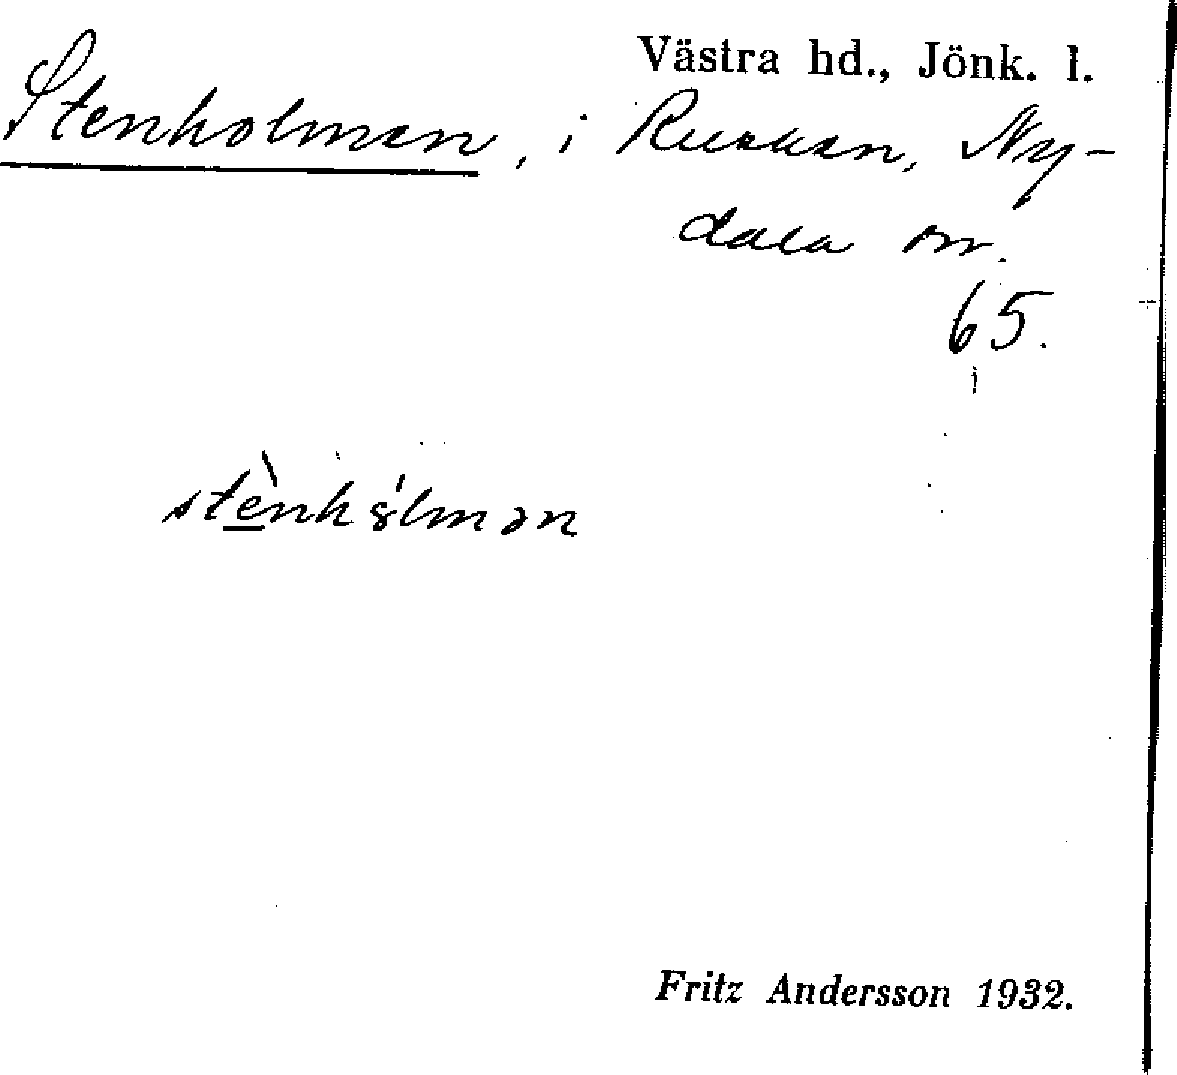 Västra hd., Jönk. l.
Stenholmen, i Rusken, Ny-
dala sn.
65.
stènhólmən
Fritz Andersson 1932.